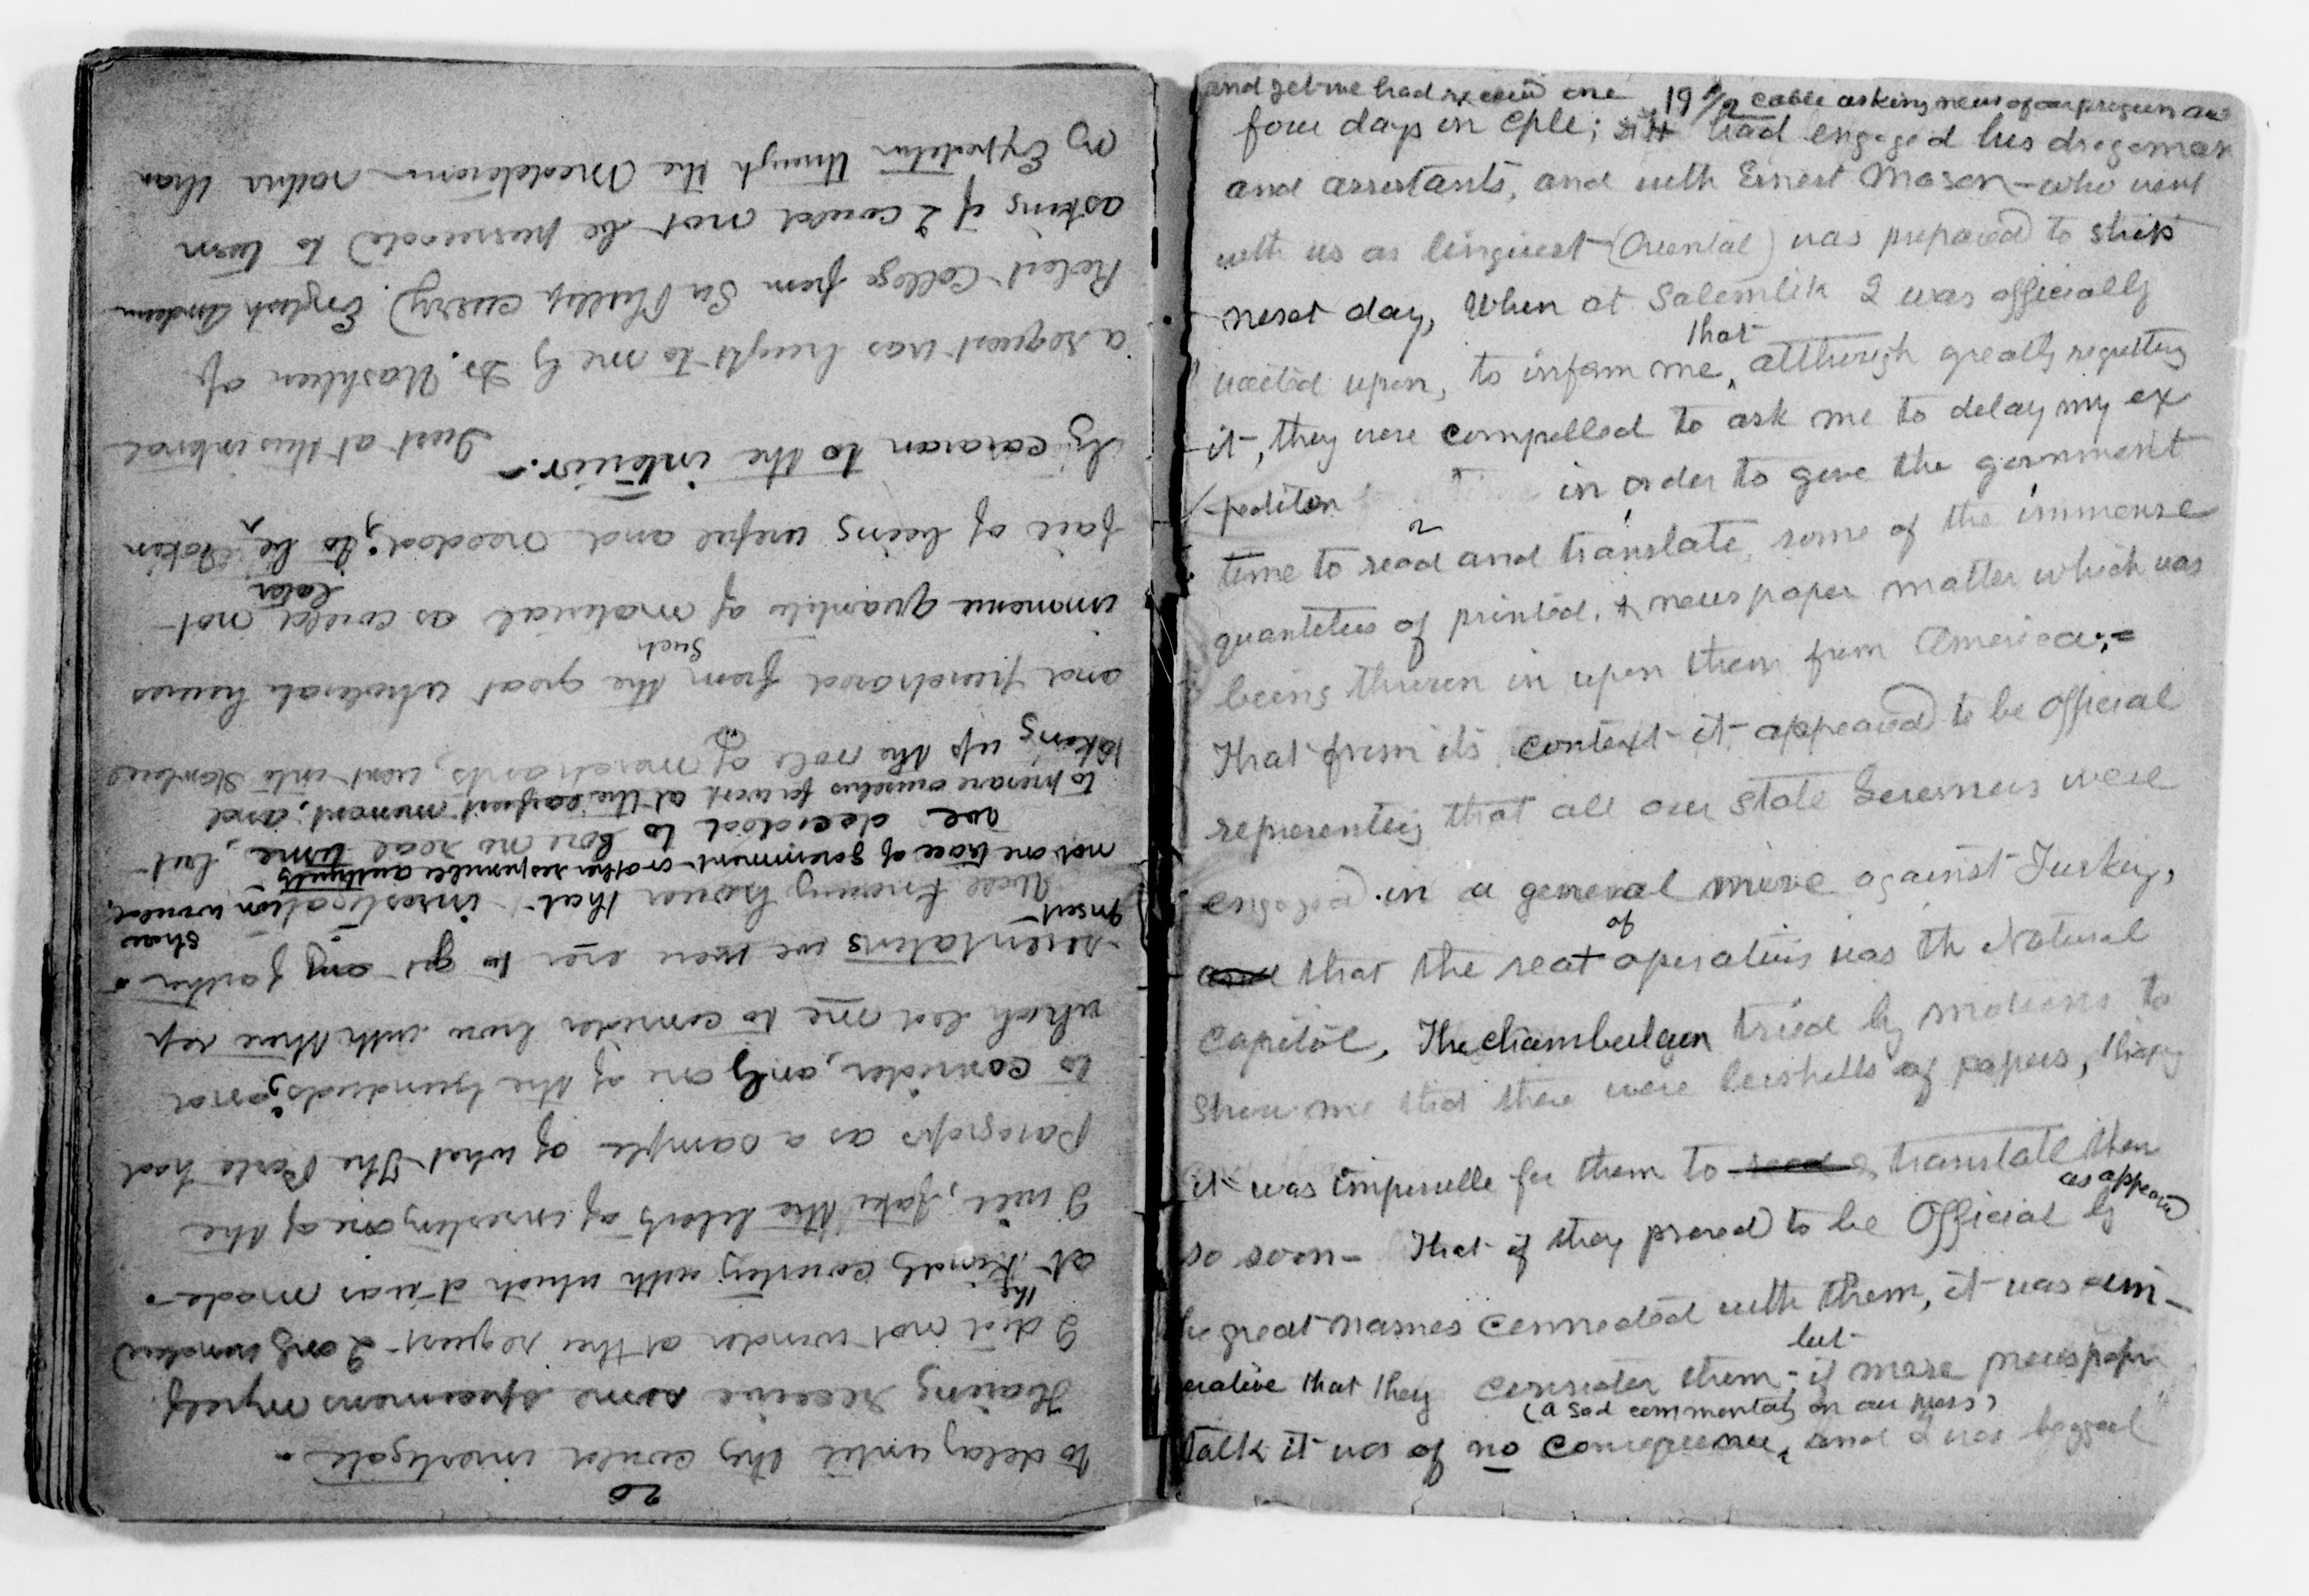 and yet we had received one 19 1/2 cable asking news of our progress and
four days in Cple; still had engaged his dragoman
and assistants, and with Ernest Mason - who went
with us as linguist (Oriental) was prepared to ship
next day, When at Salemlik I was officially
waited upon, to inform me that although greatly regretting
it, they were compelled to ask me to delay my ex
pediton in order to give the government
time to read and translate, some of the immense
quantities of printed, & newspaper matter which was
being thrown in upon them from America:=
That from its context it appeared to be official
representing that all our State Governers were
engaged in a general move against Turkey,
and that the seat of operations was the National
Capitol, The chamberlain tried by motions to
Show me that there were bushells of papers,
it was impossible for them to read & translate them
so soon - That if they proved to be Official as appeared by
he great names connected with them, it was im-
erative that they consider them - but if mere newspaper
talk it was of no consequence, (a sad commentary on our press) and I was begged
20
to delay until they could investigate -
Having receive some specimens myself
I did not wonder at the request I only wondered
at the kindly courtesy with which it was made.
I will, take the liberty of inserting one of the
Paragraphs as a sample of what The Porte had
to consider, only one of the hundreds; and
which led me to consider how with these rep
-resentations we were ever to get any farther.
Insert
Well knowing however that investigation would, show
not one trace of government or other responsible authority
we decided to lose no real time, but
to prepare ourselves for work at the earliest moment; and
taking up the role of merchants, went into Stamboul
and purchased from the great wholesale houses
immense quantities of such material as could not
fail of being useful and needed; to be later taken
by caravan to the interior. - Just at this interval
a request was brought to me by Dr. Washburn of
Robert College from Sir Phillip Curry) English Ambm
asking if I could not be persuaded to turn
my Expedition through the Meditteranean rather than